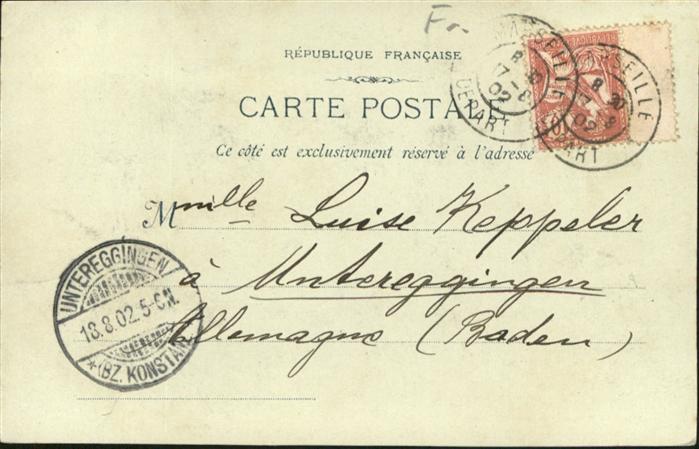 Fr.
RÉPUBLIQUE FRANÇAISE
CARTE POSTALE
Ce côté est exclusivement réservé à l'adresse
MARSEILLE
DEPART
MARSEILLE
8 30
02
Mmlle Luise Keppeler
à Untereggingen
Allemagne (Baden)
UNTEREGGINGEN
18.8.02.5-6N.
(BZ. KONSTANZ